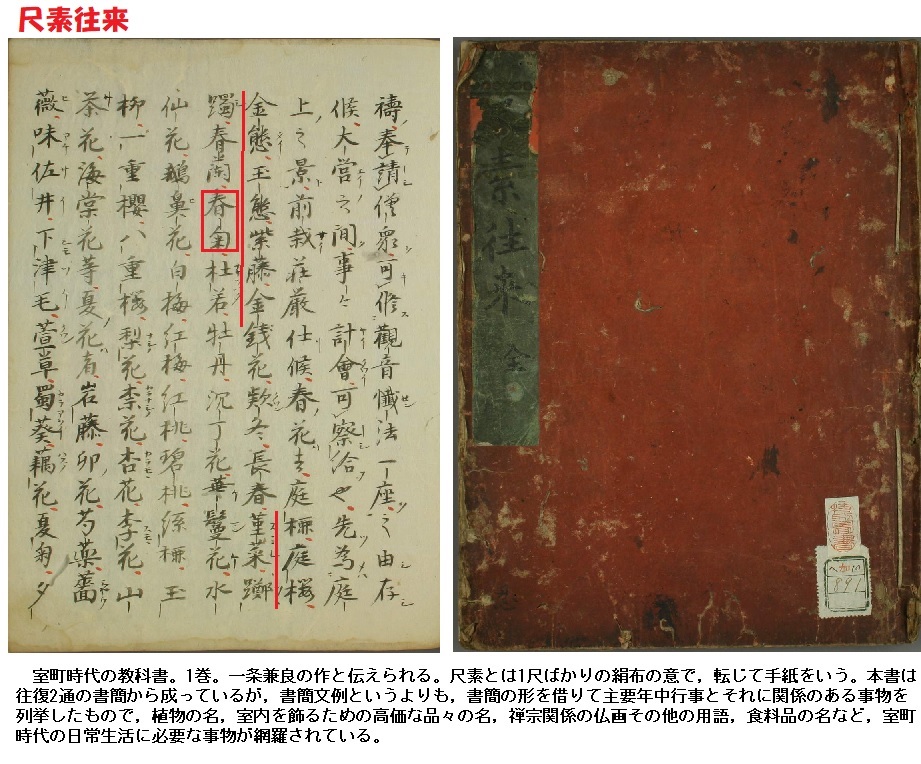 尺素往来
禱奉請僧衆可修觀音懺法一座之由存
候大営之間事々計會可察給也先為庭
上之景前栽荘厳仕候春花者庭梅庭桜
金態玉態紫藤金銭花欵冬長春菫菜躑
躅春蘭春菊杜若牡丹沉丁花華鬘花水
仙花鵝鼻花白梅紅梅紅桃碧桃絲玉
柳一重櫻八重桜梨花柰花杏花李花山
茶花海棠花等夏花者岩藤卯花芍薬薔
薇味佐井下津毛萱草蜀葵藕花夏菊夕
素往来
全
891
室町時代の教科書。1巻。一条兼良の作と伝えられる。尺素とは1尺ばかりの絹布の意で，転じて手紙をいう。本書は
往復2通の書簡から成っているが，書簡文例というよりも，書簡の形を借りて主要年中行事とそれに関係のある事物を
列挙したもので，植物の名，室内を飾るための高価な品々の名，禅宗関係の仏画その他の用語，食料品の名など，室町
時代の日常生活に必要な事物が網羅されている。